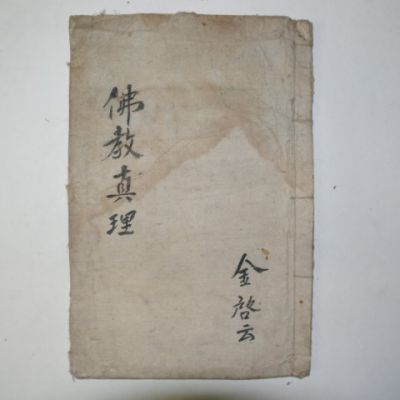 佛教真理
金啓云